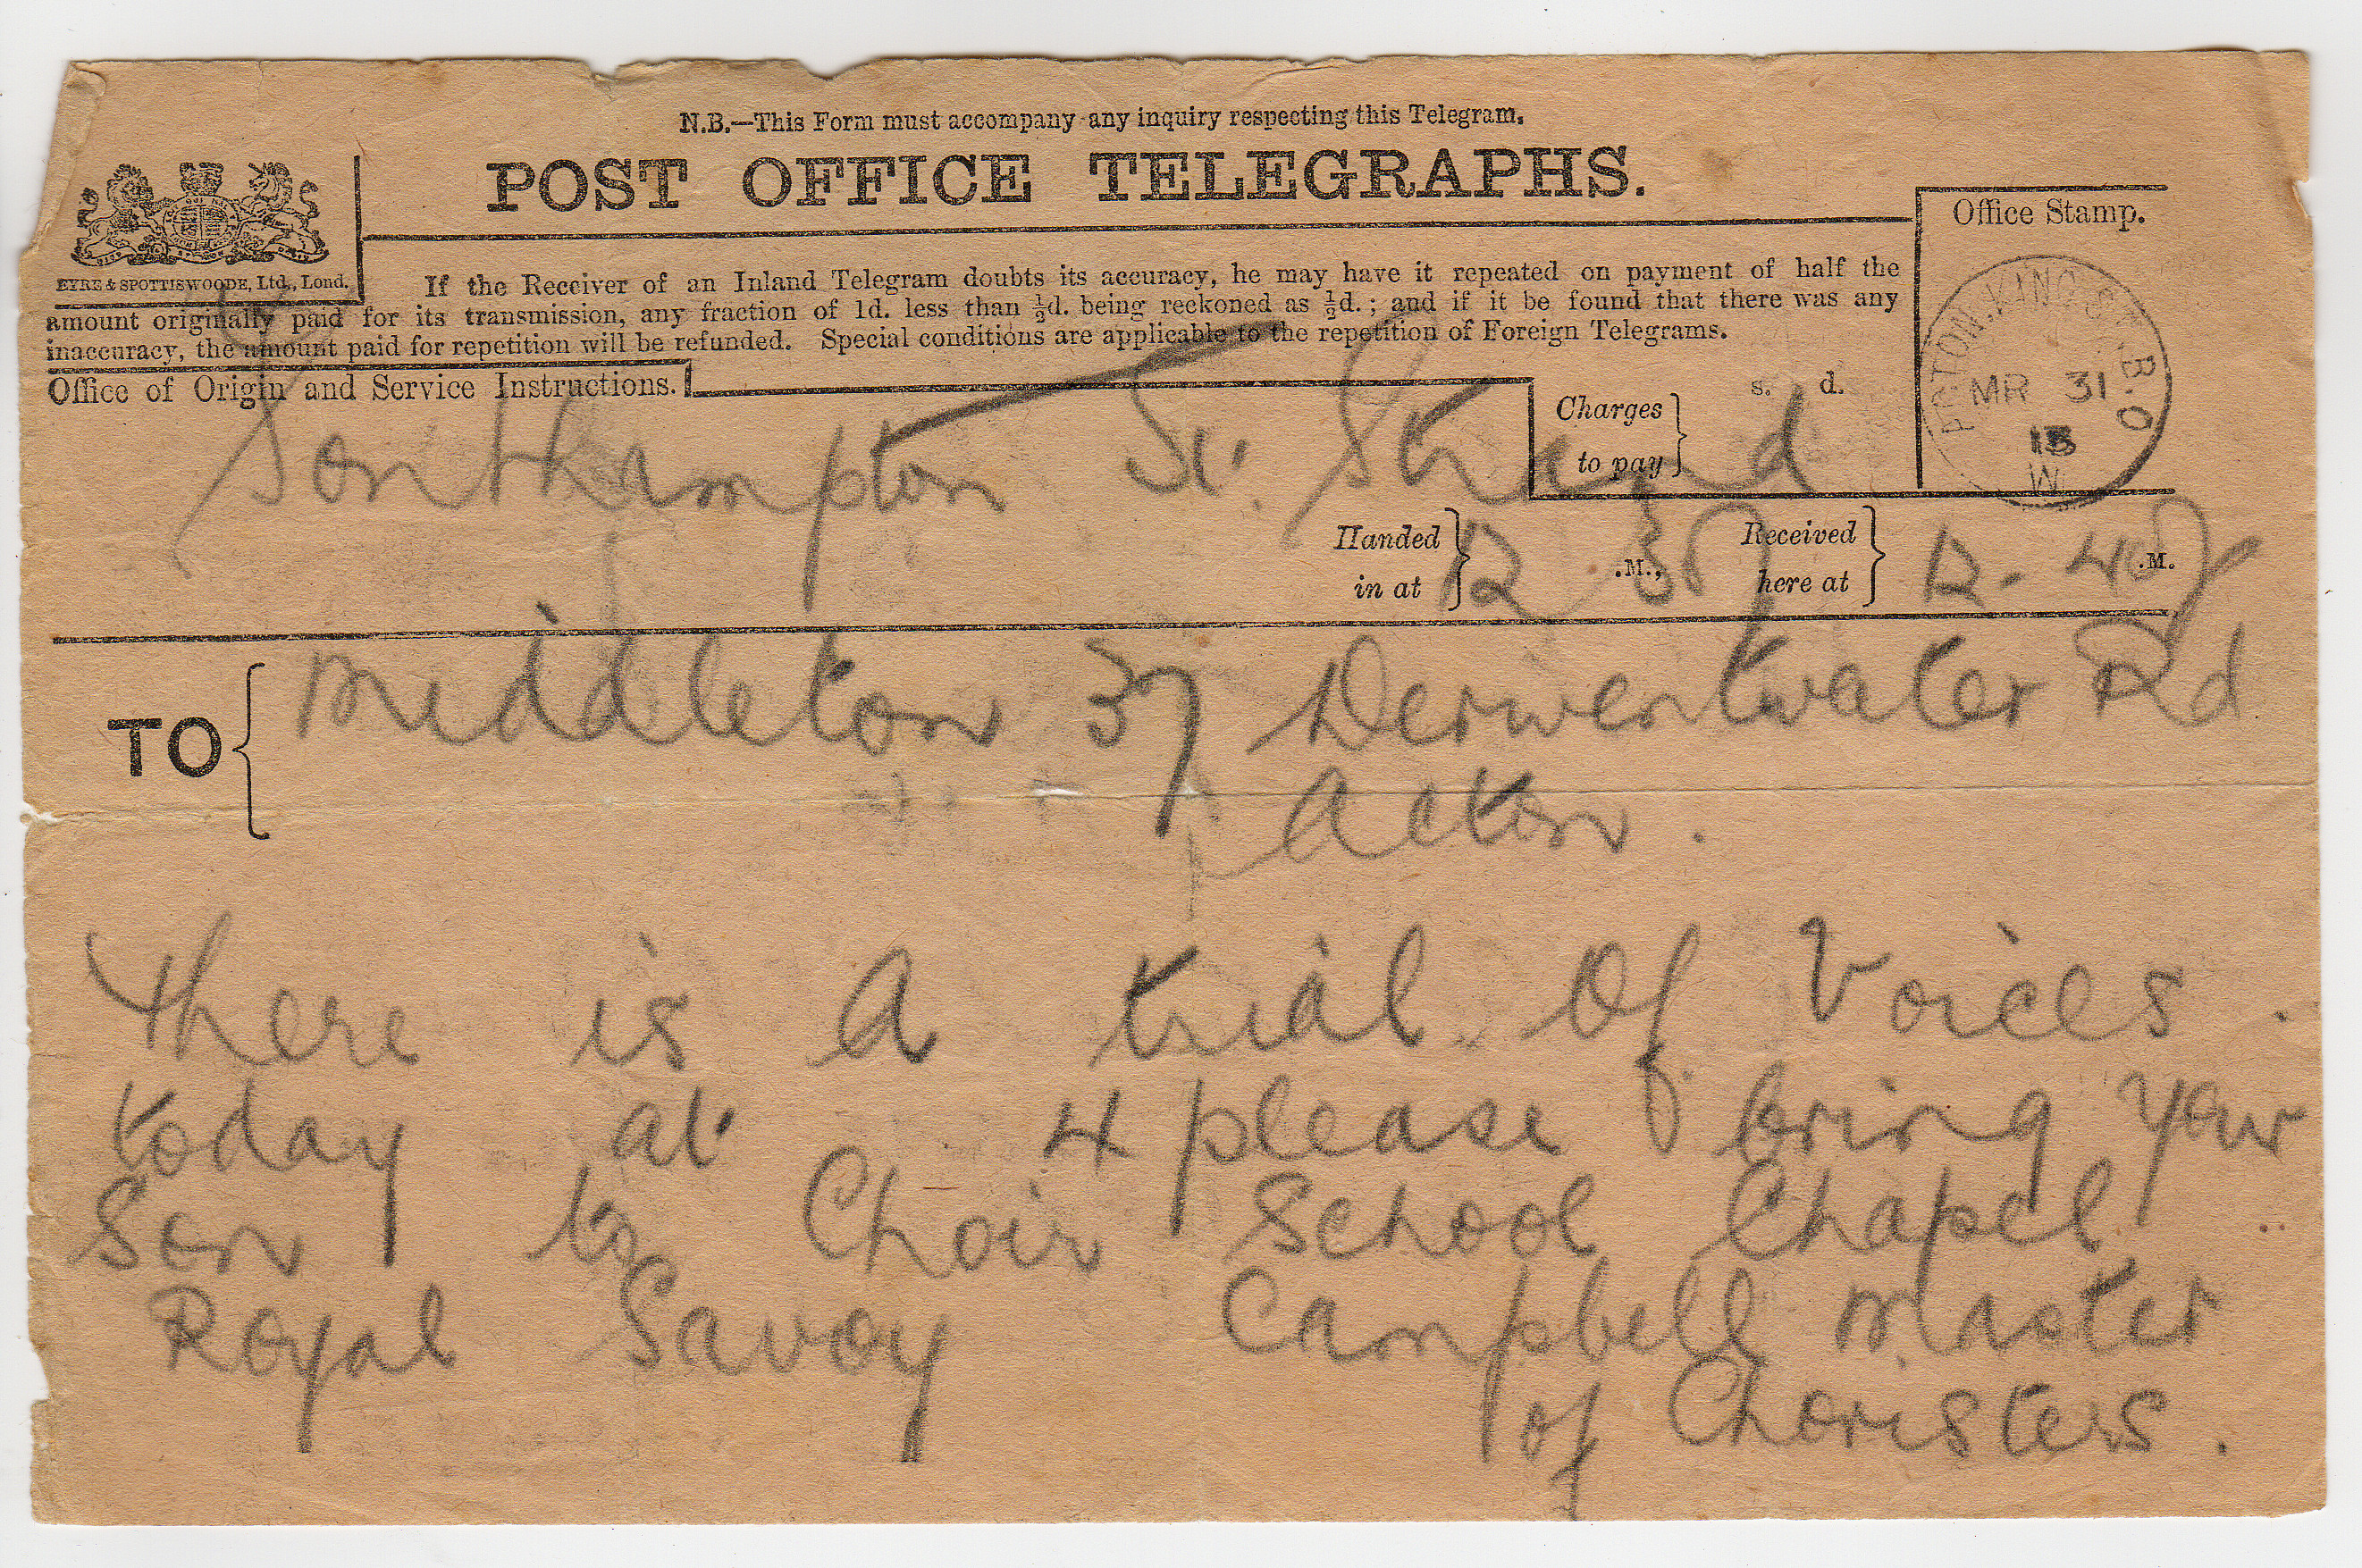 N.B.—This Form must accompany any inquiry respecting this Telegram.
POST OFFICE TELEGRAPHS.
EYRE & SPOTTISWOODE, Ltd., Lond.
If the Receiver of an Inland Telegram doubts its accuracy, he may have it repeated on payment of half the
amount originally paid for its transmission, any fraction of 1d. less than ½d. being reckoned as ½d.; and if it be found that there was any
inaccuracy, the amount paid for repetition will be refunded. Special conditions are applicable to the repetition of Foreign Telegrams.
Office Stamp.
ACTON.KING.ST.B.O
MR 31
13
W.
Office of Origin and Service Instructions.
s. d.
Charges
to pay
Southampton St. Strand
Handed
in at
12 37 .M.,
Received
here at
12.48 .M.
TO
Middleton 37 Derwentwater Rd
Acton.
There is A trial Of Voices.
today at 4 please bring your
Son to Choir School Chapel
Royal Savoy Campbell Master
of Choristers.